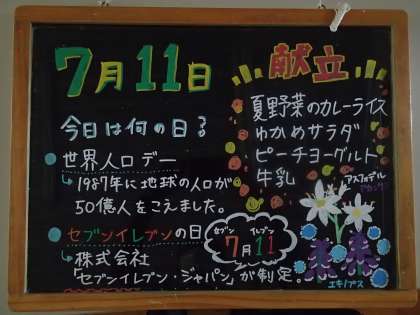 7月11日
今日は何の日？
世界人口デー
1987年に地球の人口が
50億人をこえました。
セブンイレブンの日
セブン イレブン
7月11
株式会社
「セブンイレブン・ジャパン」が制定。
献立
夏野菜のカレーライス
わかめサラダ
ピーチヨーグルト
牛乳
アスフォデル
エキノプス